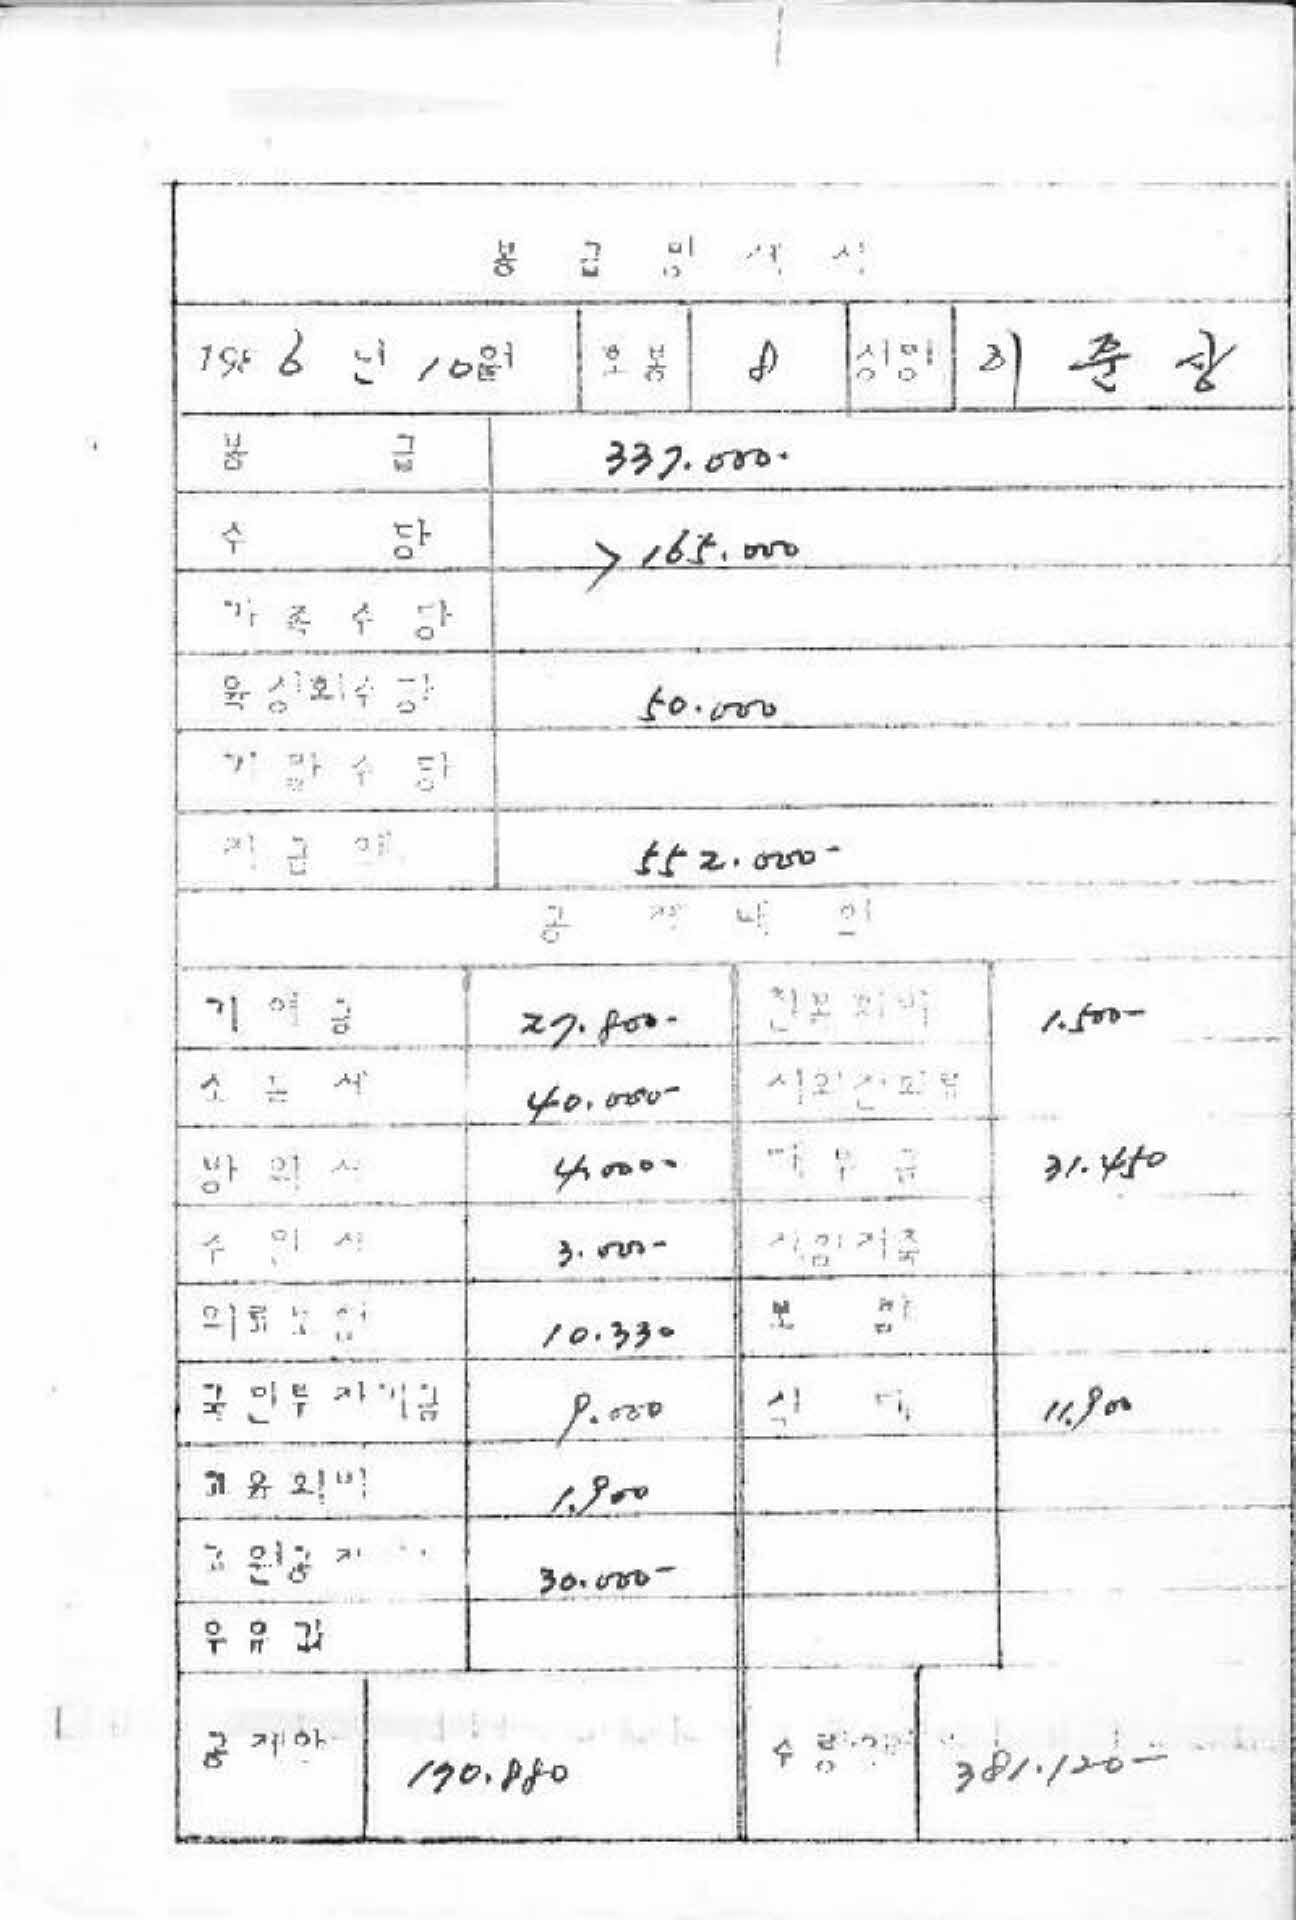 봉급명세서
1986년 10월 호봉 8 성명 최준상
봉급 337.000.
수당 > 165.000
가족수당
육성회수당 50.000
기말수당
지급액 552.000-
공제내역
기여금 27.800- 친목회비 1.500-
소득세 40.000-
방위세 4.000- 대부금 31.450
주민세 3.000- 신협저축
의료보험 10.330 보험
국민투자기금 9.000 식대 11.900
교육회비 1.900
교원공제 30.000-
우유값
공제액 170.880 수령액 381.120-